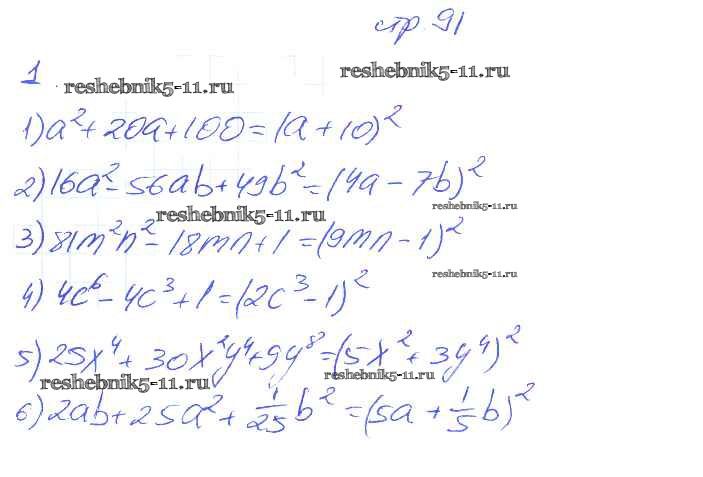 стр. 91
1
reshebnik5-11.ru
reshebnik5-11.ru
1) a² + 20a + 100 = (a + 10)²
2) 16a² - 56ab + 49b² = (4a - 7b)²
reshebnik5-11.ru
reshebnik5-11.ru
3) 81m²n² - 18mn + 1 = (9mn - 1)²
reshebnik5-11.ru
4) 4c⁶ - 4c³ + 1 = (2c³ - 1)²
5) 25x⁴ + 30x²y⁴ + 9y⁸ = (5x² + 3y⁴)²
reshebnik5-11.ru
reshebnik5-11.ru
6) 2ab + 25a² + 1/25 b² = (5a + 1/5 b)²